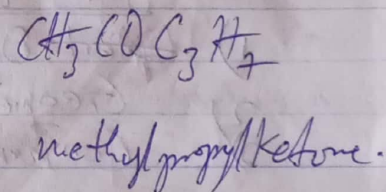 CH₃COC₃H₇
methyl propyl ketone.